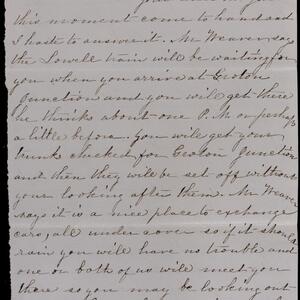 this moment come to hand and
I haste to answer it. Mr Weaver, say
the Lowell train will be waiting for
you when you arrive at Groton
Junction and you will get there
he thinks about one P.M. or perhaps
a little before. You will get your
trunk checked for Groton Junction
and then they will be set off without
your looking after them. Mr Weaver
says it is a nice place to exchange
cars, all under cover so if it should
rain you will have no trouble and
one or both of us will meet you
there so you may be looking out